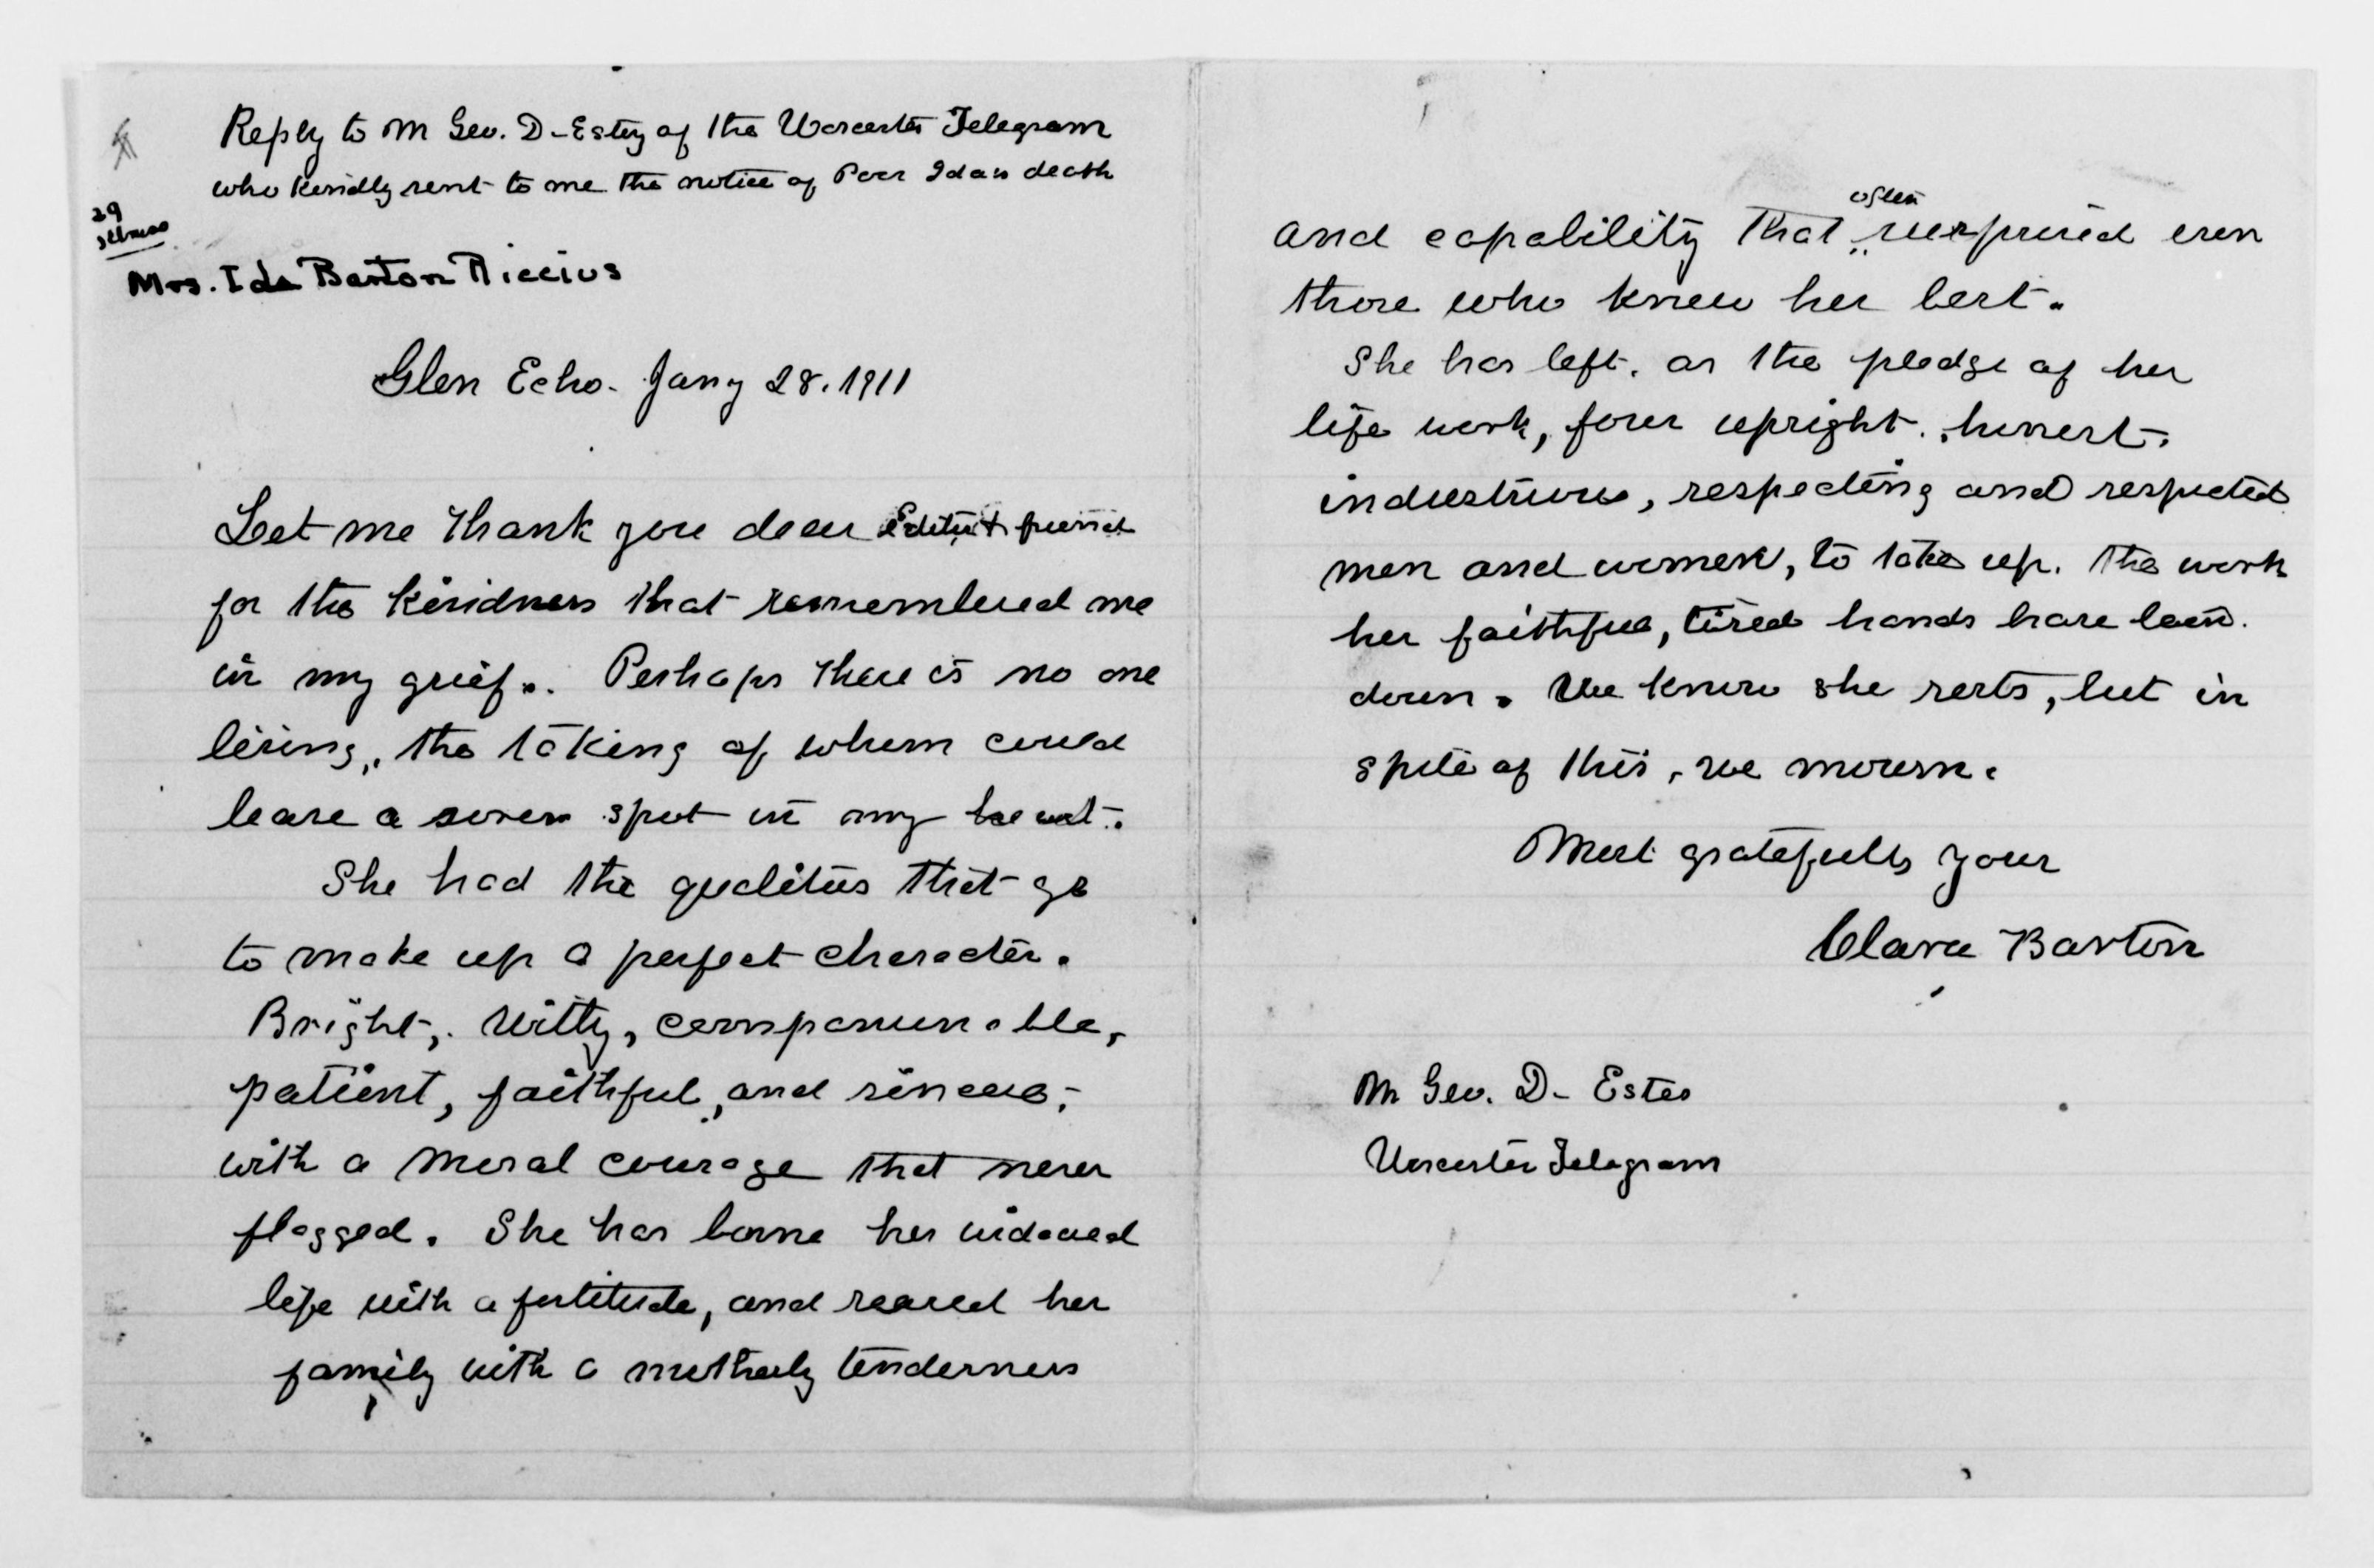 Reply to M Geo. D-Estey of the Worcester Telegram
who kindly sent to me the notice of Poor Idas death
29
Mrs. Ida Barton Riccius
Glen Echo. Jany 28. 1911
Let me thank you dear Editor & friend
for the kindness that remembered me
in my grief. Perhaps there is no one
living, the taking of whom could
leave a sorer spot in my heart.
She had the qualities that go
to make up a perfect character.
Bright, Witty, companionable,
patient, faithful, and sincere,
with a moral courage that never
flagged. She has borne her widowed
life with a fortitude, and reared her
family with a motherly tenderness
often
and capability that surprised even
those who knew her best.
She has left, as the pledge of her
life work, four upright, honest,
industrious, respecting and respected
men and women, to take up. the work
her faithful, tired hands have laid
down. We know she rests, but in
spite of this, we mourn.
Most gratefully your
Clara Barton
M Geo. D- Estes
Worcester Telegram